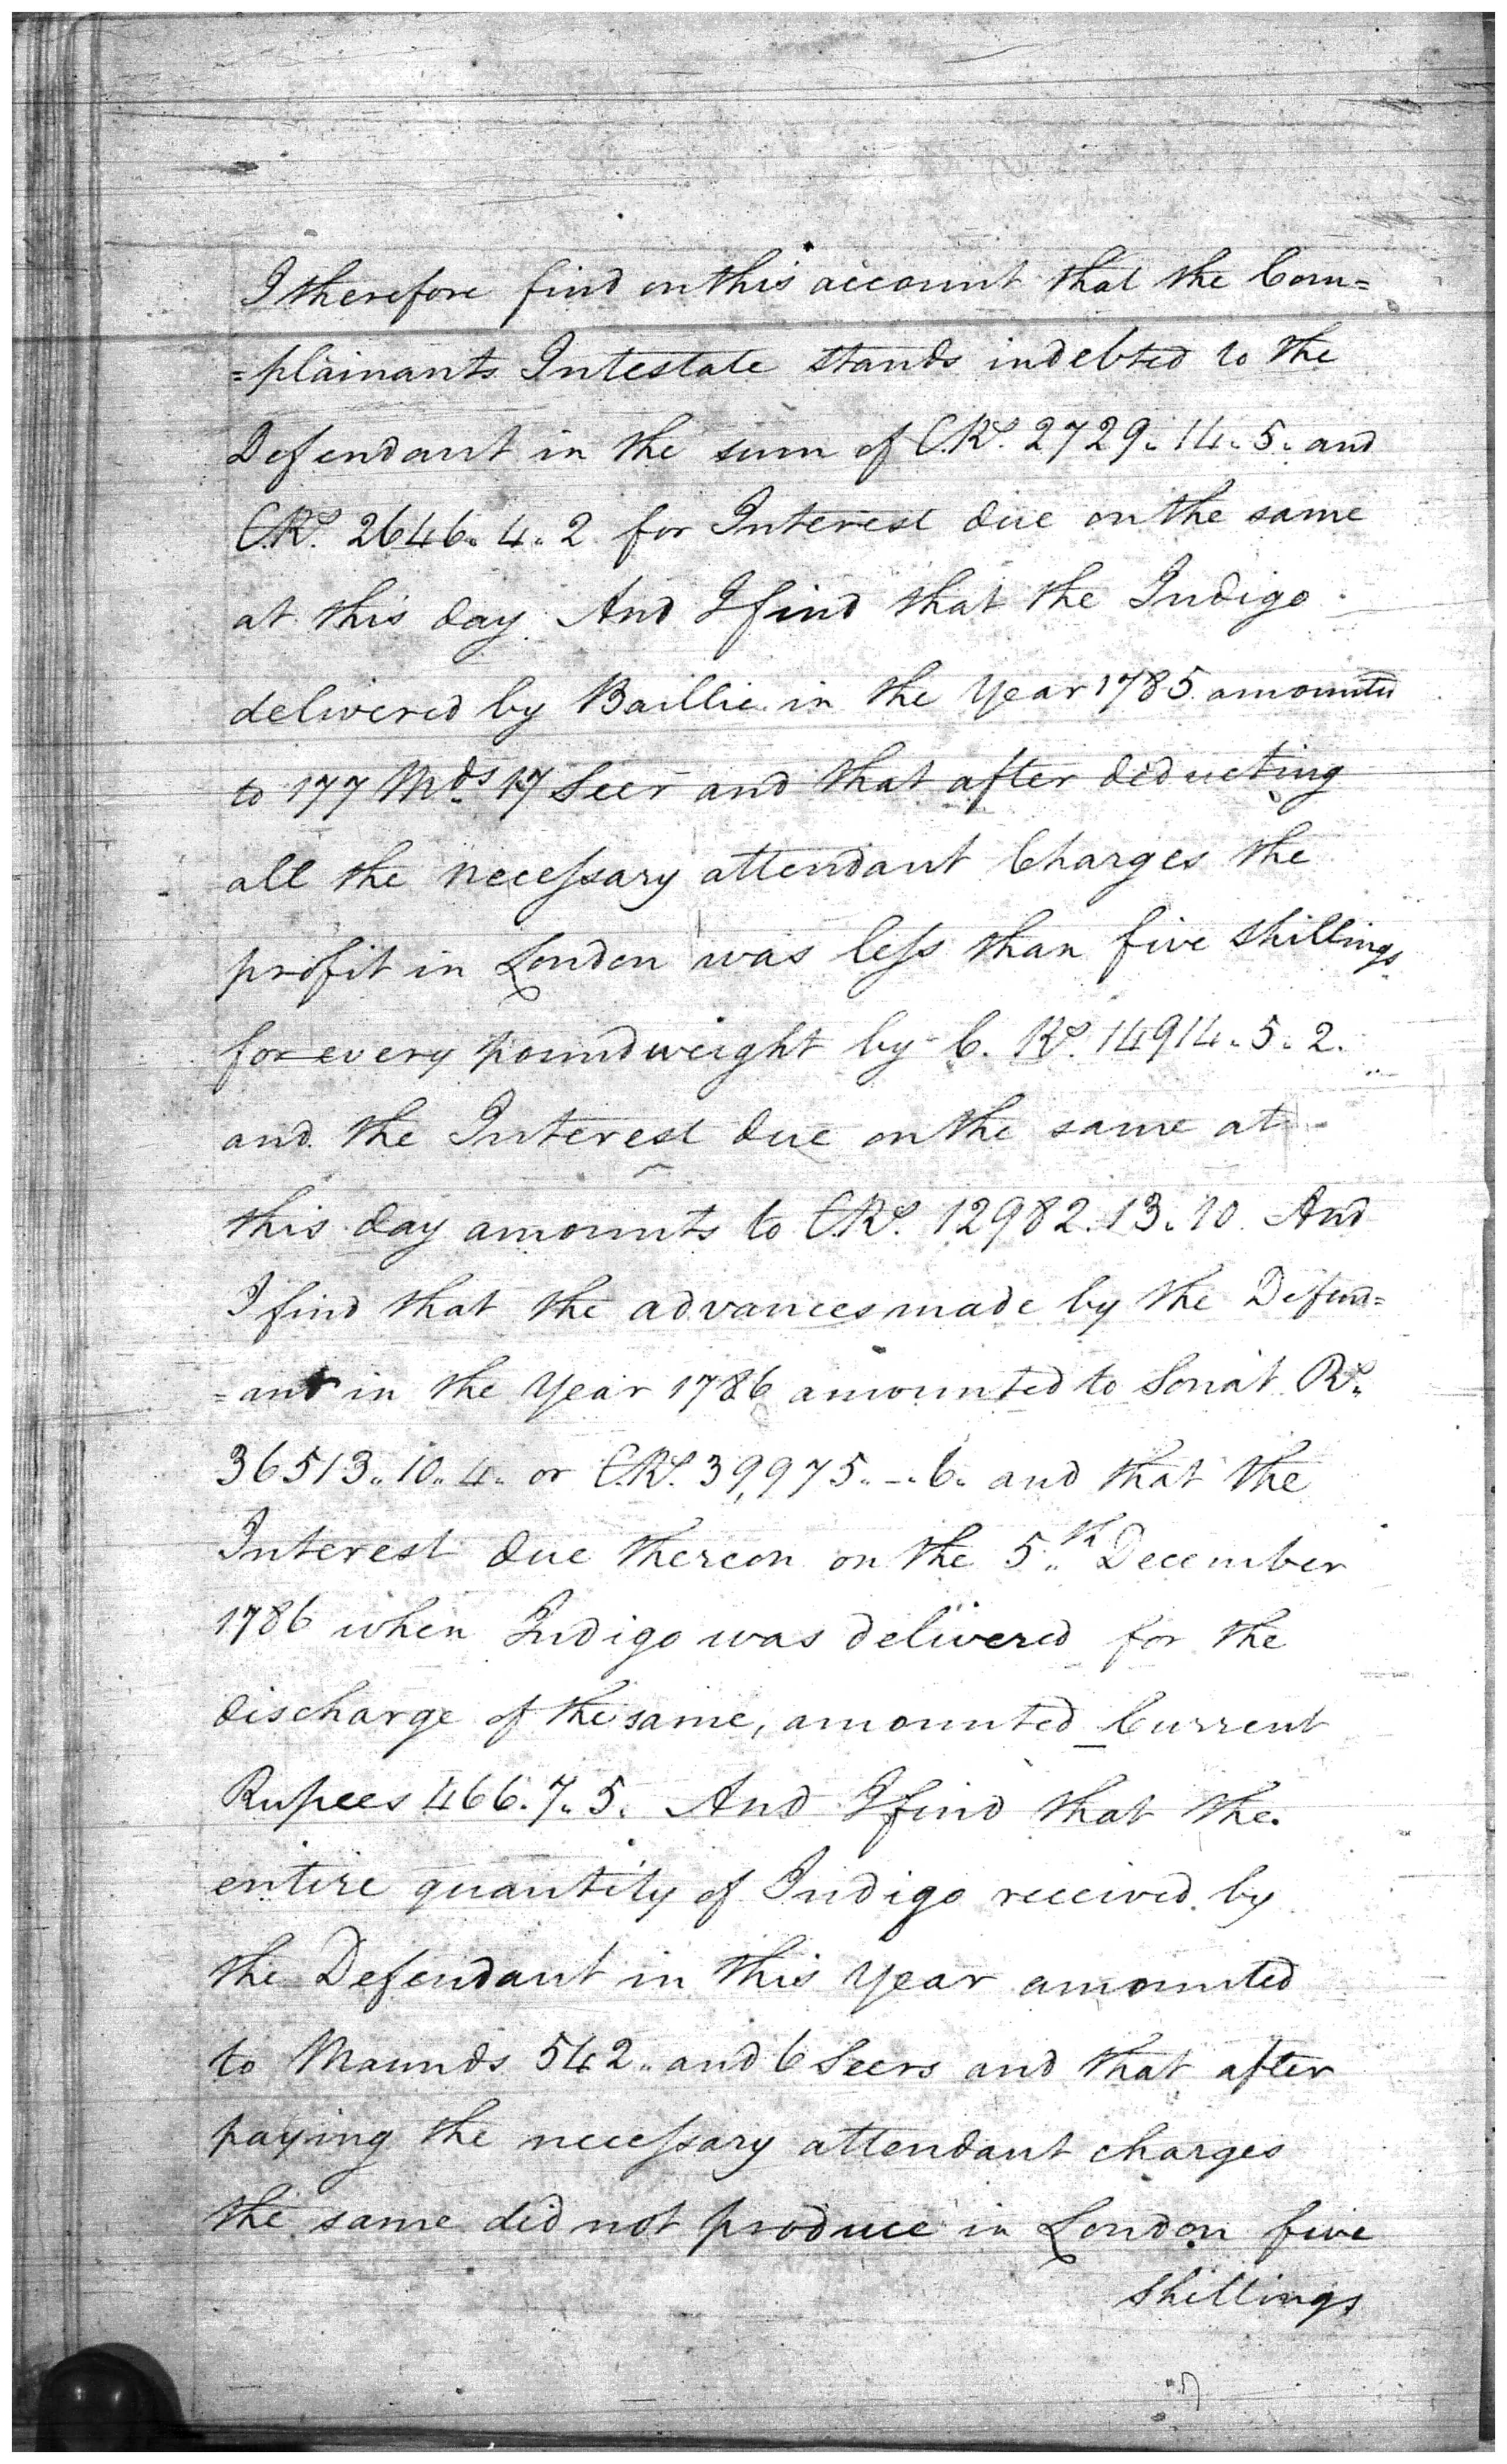 I therefore find on this account that the Com=
=plainants Intestate stands indebted to the
Defendant in the sum of C.Rs. 2729.. 14.. 5.. and
C.Rs. 2646.. 4.. 2 for Interest due on the same
at this day. And I find that the Indigo
delivered by Baillie in the Year 1785 amounted
to 177 Mds 17 Seer and that after deducting
all the necessary attendant Charges the
profit in London was less than five Shillings
for every pound weight by C. Rs. 14914.. 5.. 2.
and the Interest due on the same at
this day amounts to C.Rs. 12982.. 13.. 10. And
I find that the advances made by the Defend=
=ant in the Year 1786 amounted to Sonat Rs..
36513.. 10.. 4.. or C.Rs. 39,975.. –.. 6.. and that the
Interest due thereon on the 5th December
1786 when Indigo was delivered for the
discharge of the same, amounted Current
Rupees 466.. 7.. 5. And I find that the
entire quantity of Indigo received by
the Defendant in this Year amounted
to Maunds 542.. and 6 Seers and that after
paying the necessary attendant charges
the same did not produce in London five
Shillings